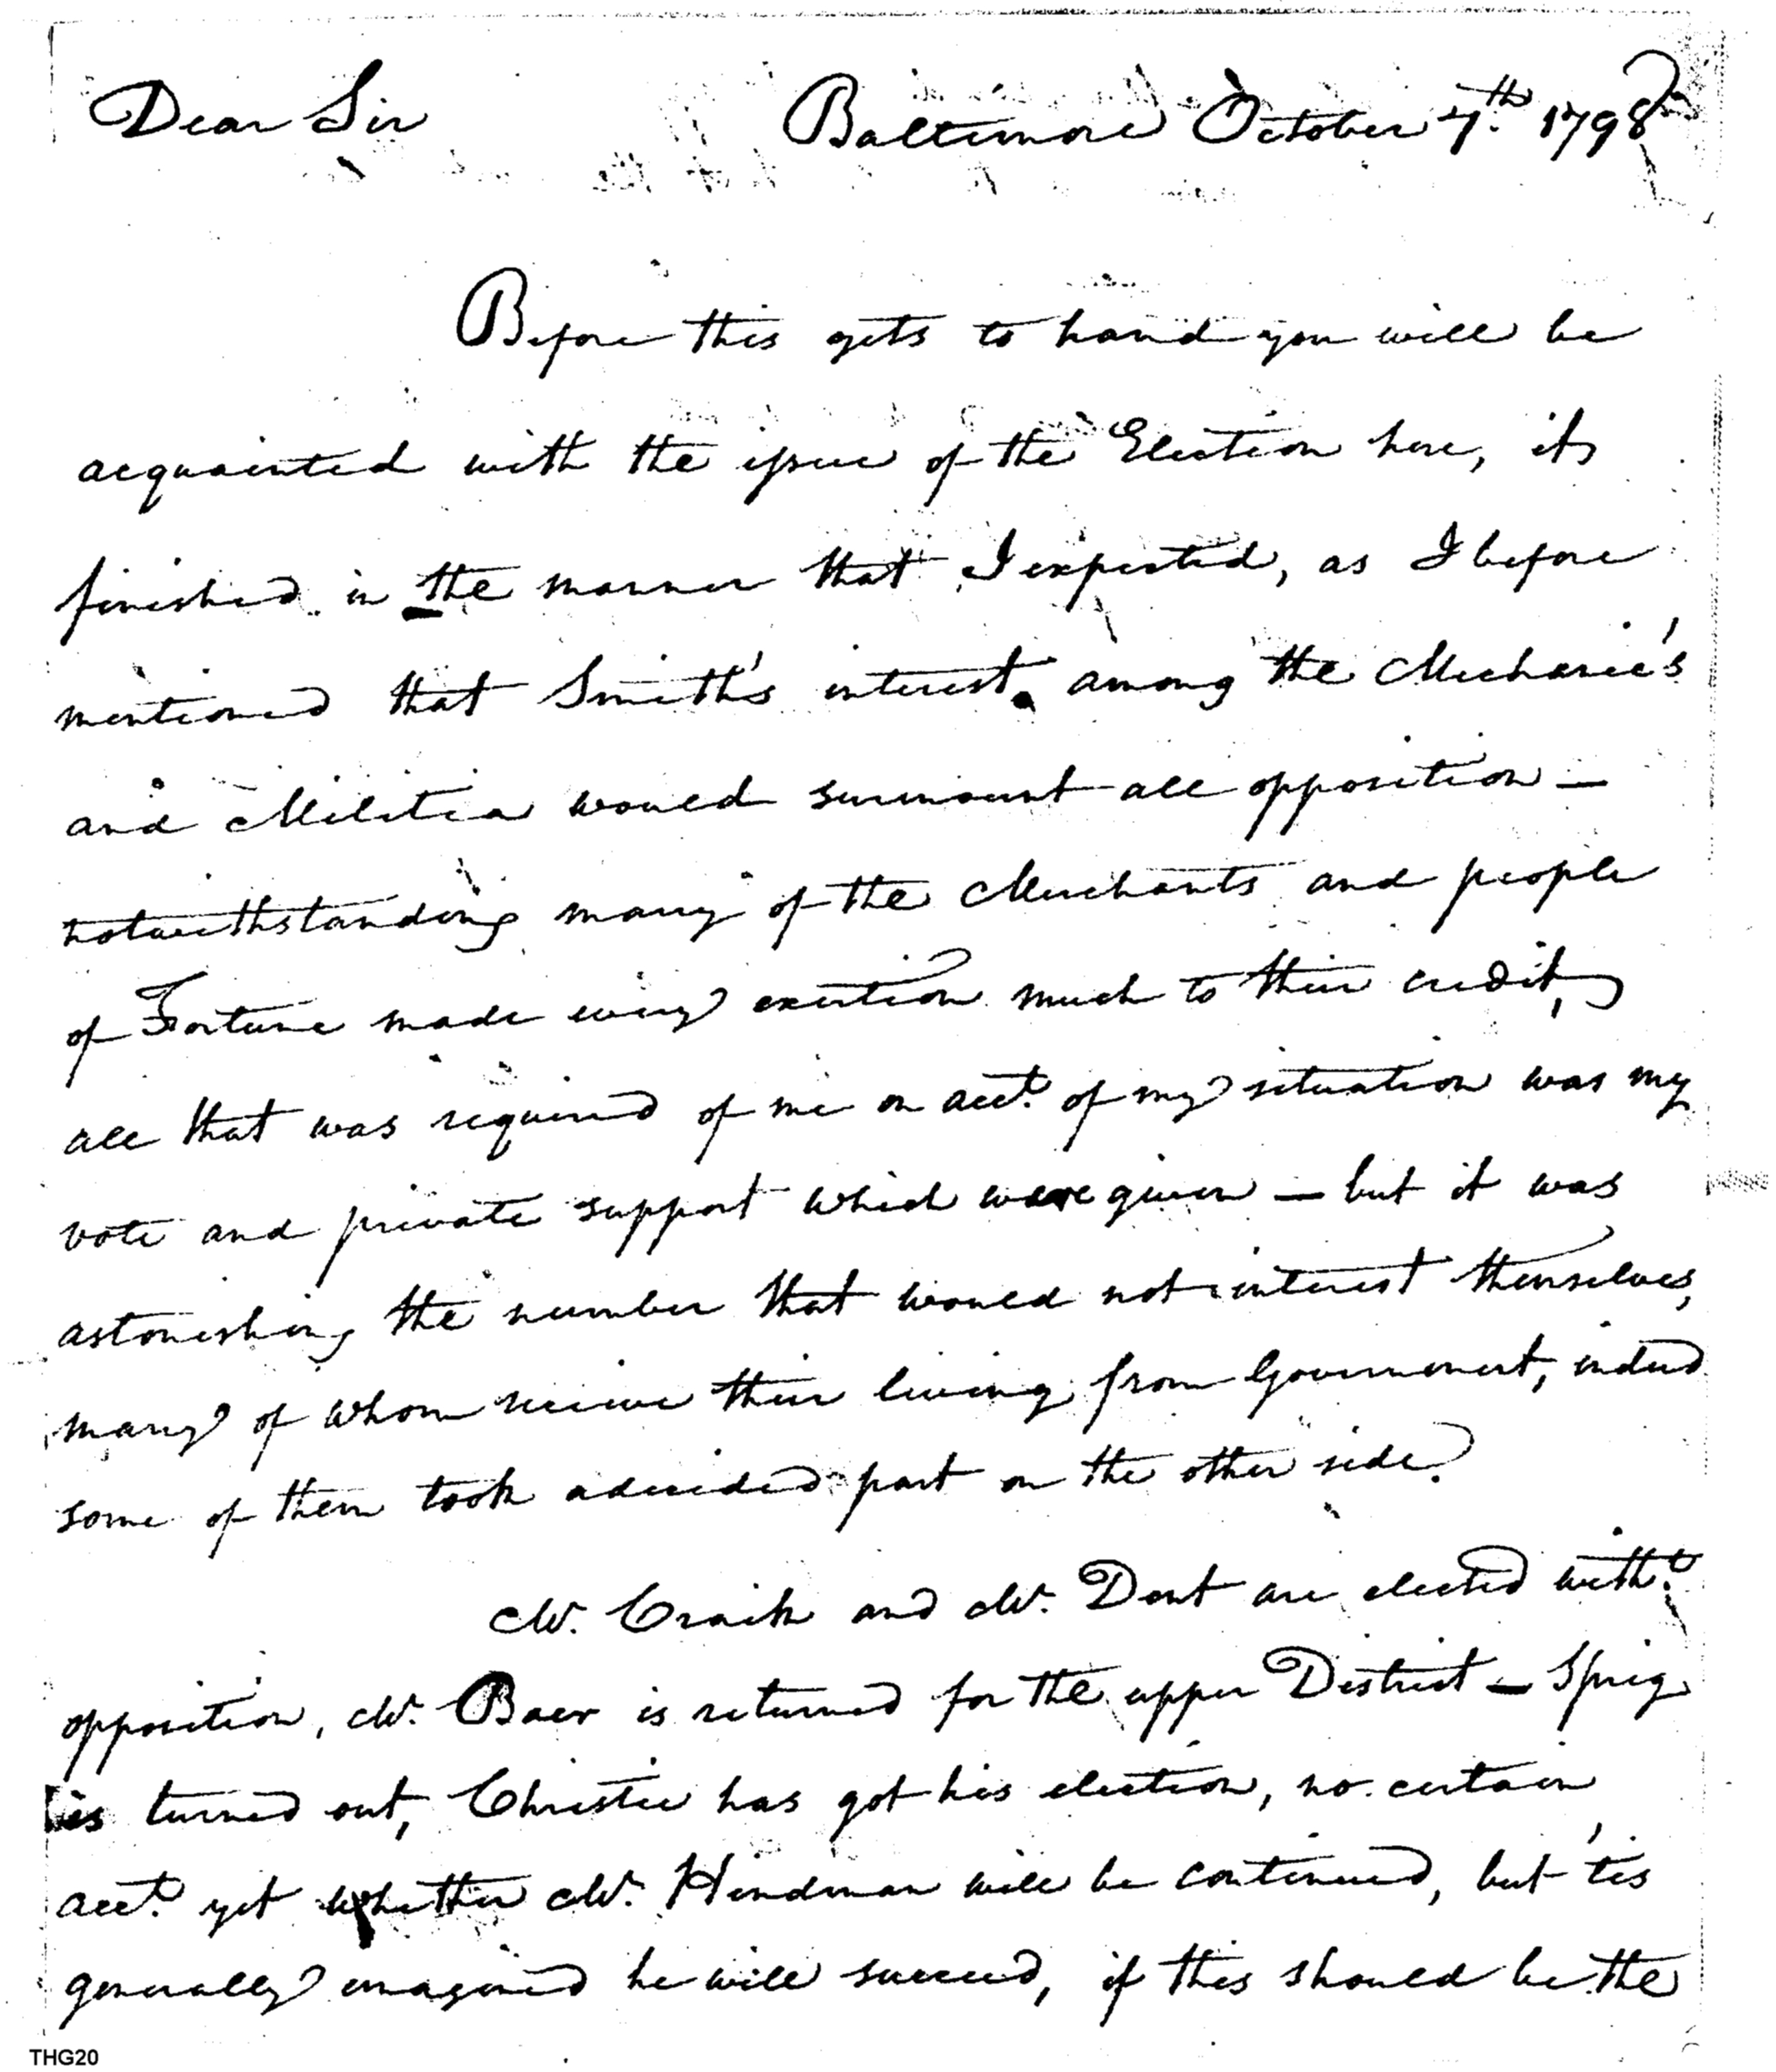 Dear Sir Baltimore October 7th. 1798
Before this gets to hand you will be
acquainted with the issue of the Election here, its
finished in the manner that I expected, as I before
mentioned that Smith's interest among the Mechanic's
and Militia would surmount all opposition —
notwithstanding many of the Merchants and people
of Fortune made every exertion much to their credit,
all that was required of me on acct. of my situation was my
vote and private support which were given — but it was
astonishing the number that would not interest themselves,
many of whom receive their living from Government, indeed
some of them took a decided part on the other side.
Mr. Craik and Mr. Dent are elected witht.
opposition, Mr. Baer is returned for the upper District — Sprig
is turned out, Christie has got his election, no certain
acct. yet whether Mr. Hindman will be continued, but 'tis
generally imagined he will succeed, if this should be the
THG20